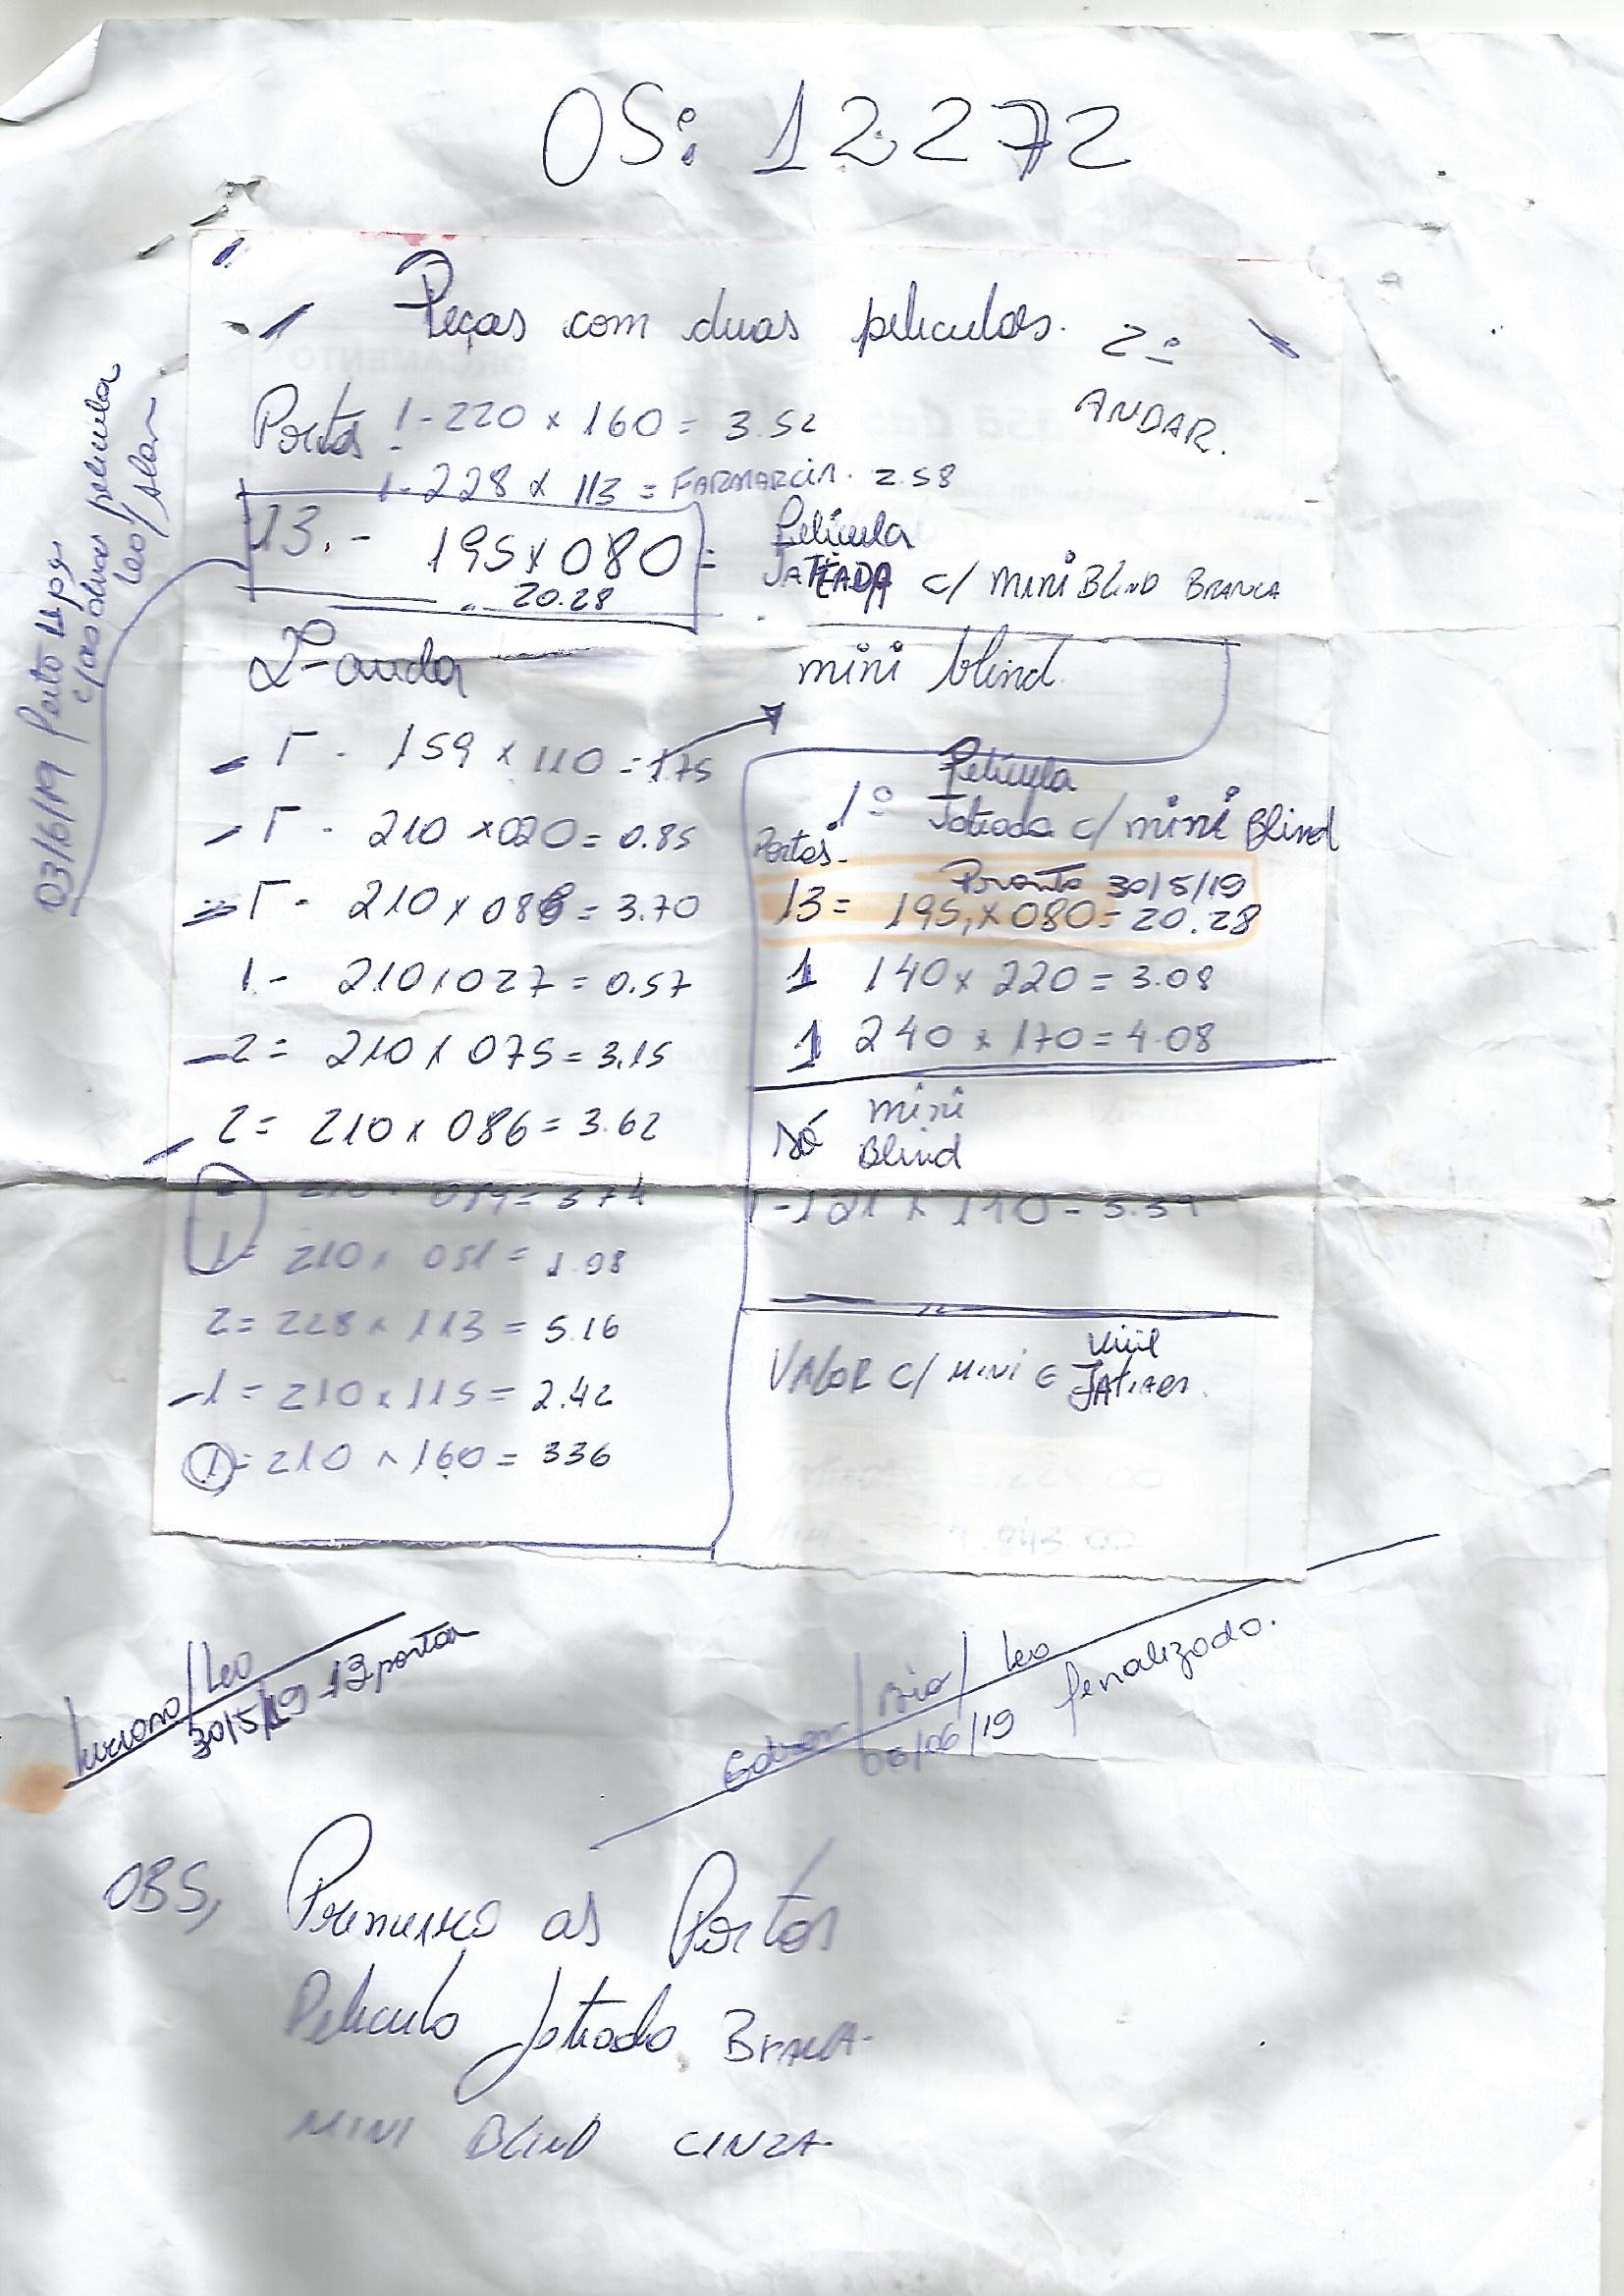 OS: 12272
Peças com duas peliculas. 2º
ANDAR.
Portas 1-220 x 160 = 3.52
1-228 x 113 = FARMARCIA. 2.58
13.- 195x080 =
20.28
Película
JATEADA c/ mini Blind BRANCA
2º anda
1 - 159 x 110 = 175
1 - 210 x 020 = 0.85
1 - 210 x 088 = 3.70
1 - 210 x 027 = 0.57
2 = 210 x 075 = 3.15
2 = 210 x 086 = 3.62
089 = 374
1 = 210 x 051 = 1.08
2 = 228 x 113 = 5.16
-1 = 210 x 115 = 2.42
1 = 210 x 160 = 336
mini blind
Película
1º Jateada c/ mini Blind
Portas-
Pronto 30/5/19
13 = 195 x 080 = 20.28
1 140 x 220 = 3.08
1 240 x 170 = 4.08
só mini
Blind
VALOR C/ MINI E
03/6/19
c/as duas pelicula
Leo/Alan
Luciano/Leo
30/5/19 13 portas
/Leo
/06/19 finalizado.
OBS, Primeiro as Portas
Pelicula Jateada BRANCA
MINI BLIND CINZA